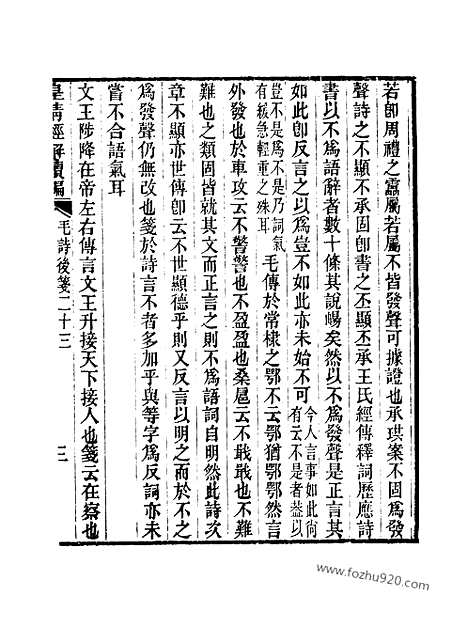 若卽周禮之靁屬若屬不皆發聲可據證也承珙案不固爲發
聲詩之不顯不承固卽書之丕顯丕承王氏經傳釋詞歷應詩
書以不爲語辭者數十條其說暢矣然以不爲發聲是正言其
如此卽反言之以爲豈不如此亦未始不可今人言事如此尙有云不是者葢以
豈不是爲不是乃詞氣有緩急輕重之殊耳毛傳於常棣之鄂不云鄂猶鄂鄂然言
外發也於車攻云不警警也不盈盈也桑扈云不戢戢也不難
難也之類固皆就其文而正言之則不爲語詞自明然此詩次
章不顯亦世傳卽云不世顯德乎則又反言以明之而於不之
爲發聲仍無改也箋於詩言不者多加乎與等字爲反詞亦未
嘗不合語氣耳
文王陟降在帝左右傳言文王升接天下接人也箋云在察也
皇淸經解續編
毛詩後箋二十三
三
www.fozhu920.com